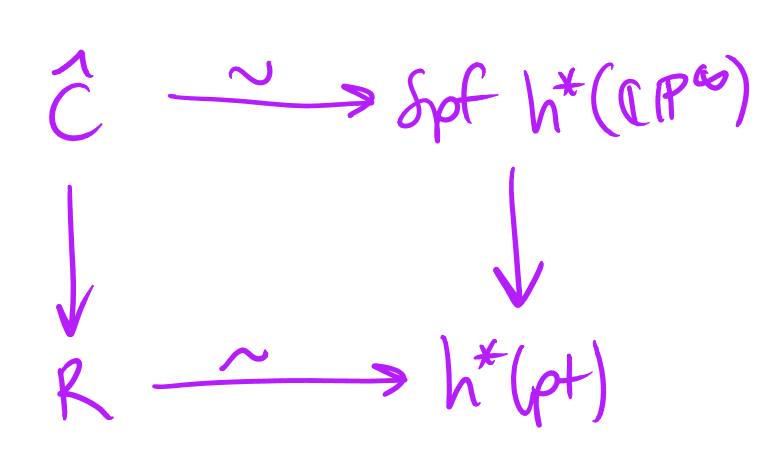 Ĉ ~ Spf h*(ℂP^∞)
R ~ h*(pt)